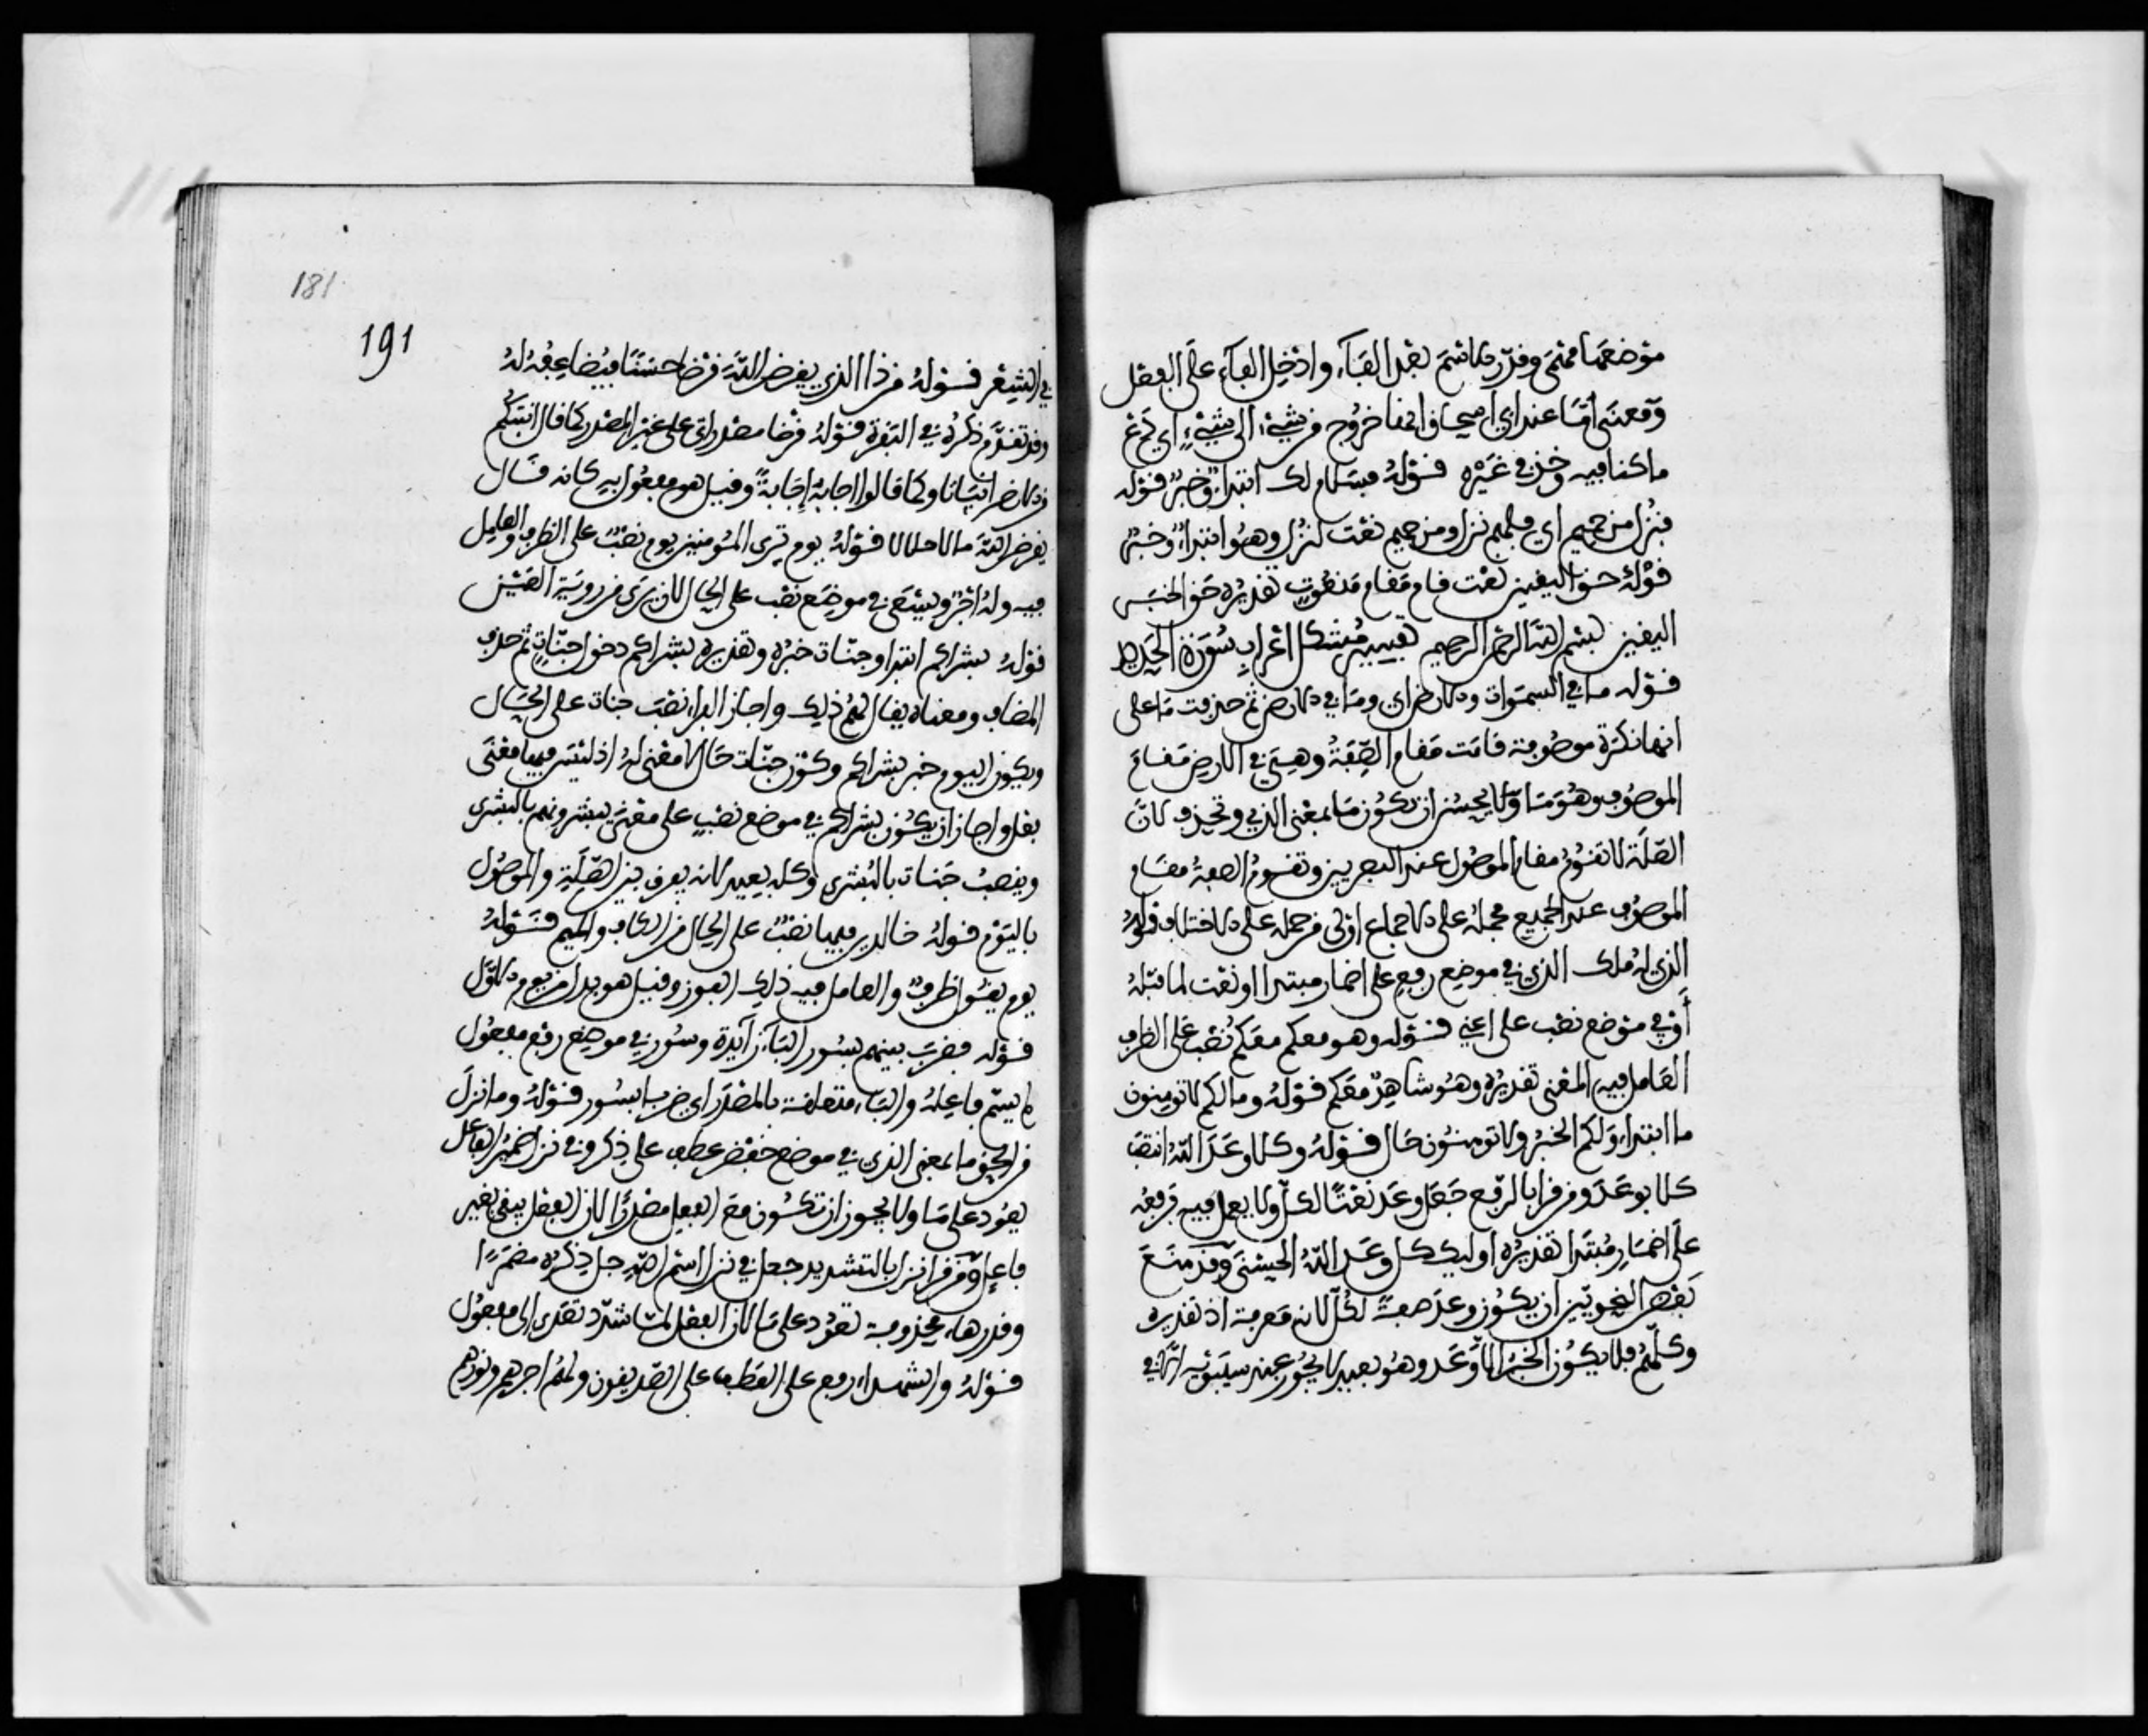 موضعها مهنى وقدر الاسم بعد الفاء وادخل الفاء على الفعل
ومعنى اما عند ابى اسحاق انها خروج من شىء الى شىء اي دع
ما كنا فيه وخذ في غيره قوله فسلام لك ابتداء وخبر قوله
فنزل من حميم اي فلهم نزل ومن حميم نعت لنزل وهو ابتداء وخبر
قوله حق اليقين نعت قام مقام منعوت تقديره حق الخبر
اليقين بسم الله الرحمن الرحيم تفسير مشكل اعراب سورة الحديد
قوله ما في السموات والارض اي وما في الارض ثم حذفت ما على
انها نكرة موصوفة قامت مقام الصفة وهي في الارض مقام
الموصوف وهو ما ولا يحسن ان تكون ما بمعنى الذي وتحذف لان
الصلة لا تقوم مقام الموصول عند البصريين وتقوم الصفة مقام
الموصوف عند الجميع فحمله على الاجماع اولى من حمله على الاختلاف قوله
الذي له ملك الذي في موضع رفع على اضمار مبتدا او نعت لما قبله
أو في موضع نصب على اعني قوله وهو معكم معكم نصب على الظرف
العامل فيه المعنى تقديره وهو شاهد معكم قوله وما لكم لا تومنون
ما ابتداء ولكم الخبر ولا تومنون حال قوله وكلا وعد الله انتصب
كلا بوعد ومن قرا بالرفع جعل وعد نعتا لكل ولا يعمل فيه فرفعه
على اضمار مبتدا تقديره اوليك كل وعد الله الحسنى وقد منع
بعض النحويين ان يكون وعد صفة لكل لانه معرفة اذ تقديره
وكلهم فلا يكون الخبر الا وعد وهو بعيد لا يجوز عند سيبويه الا في
191
181
في الشعر قوله من ذا الذي يقرض الله قرضا حسنا فيضاعفه له
وقد تقدم ذكره في البقرة قوله قرضا مصدر اتى على غير المصدر كما قال انبتكم
من الارض نباتا وكما قالوا اجابة إجابة وقيل هو مفعول به كانه قال
يقرض الله مالا حلالا قوله يوم ترى المومنين يوم نصب على الظرف والعامل
فيه وله اجر ويسعى في موضع نصب على الحال لان ترى من روية العين
قوله بشراكم ابتدا وجنات خبره وتقديره بشراكم دخول جنات ثم حذف
المضاف ومعناه يقال لهم ذلك واجاز الفراء نصب جنات على الحال
ويكون اليوم خبر بشراكم وكون جنات حال لا معنى له اذ ليس فيها معنى
فعل واجاز ان يكون بشراكم في موضع نصب على معنى يبشرونهم بالبشرى
وينصب جنات بالبشرى وكله بعيد لانه يفرق بين الصلة والموصول
باليوم قوله خالدين فيها نصب على الحال من الكاف والميم قوله
يوم يقول ظرف والعامل فيه ذلك الفوز وقيل هو بدل من يوم الاول
قوله فضرب بينهم بسور الباء زايدة وسور في موضع رفع مفعول
لم يسم فاعله والباء متعلقة بالمصدر اي ضربا بسور قوله وما نزل
من الحق ما بمعنى الذي في موضع خفض عطف على ذكر وفي نزل ضمير الفاعل
يعود على ما ولا يجوز ان تكون مع الفعل مصدرا لان الفعل يبقى بغير
فاعل ومن قرا نزل بالتشديد جعل في نزل اسم الله جل ذكره مضمرا
وقدر هاء محذوفة تعود على ما لان الفعل لما شدد تعدى الى مفعول
قوله والشهداء رفع على العطف على الصديقون ولهم اجرهم ونورهم